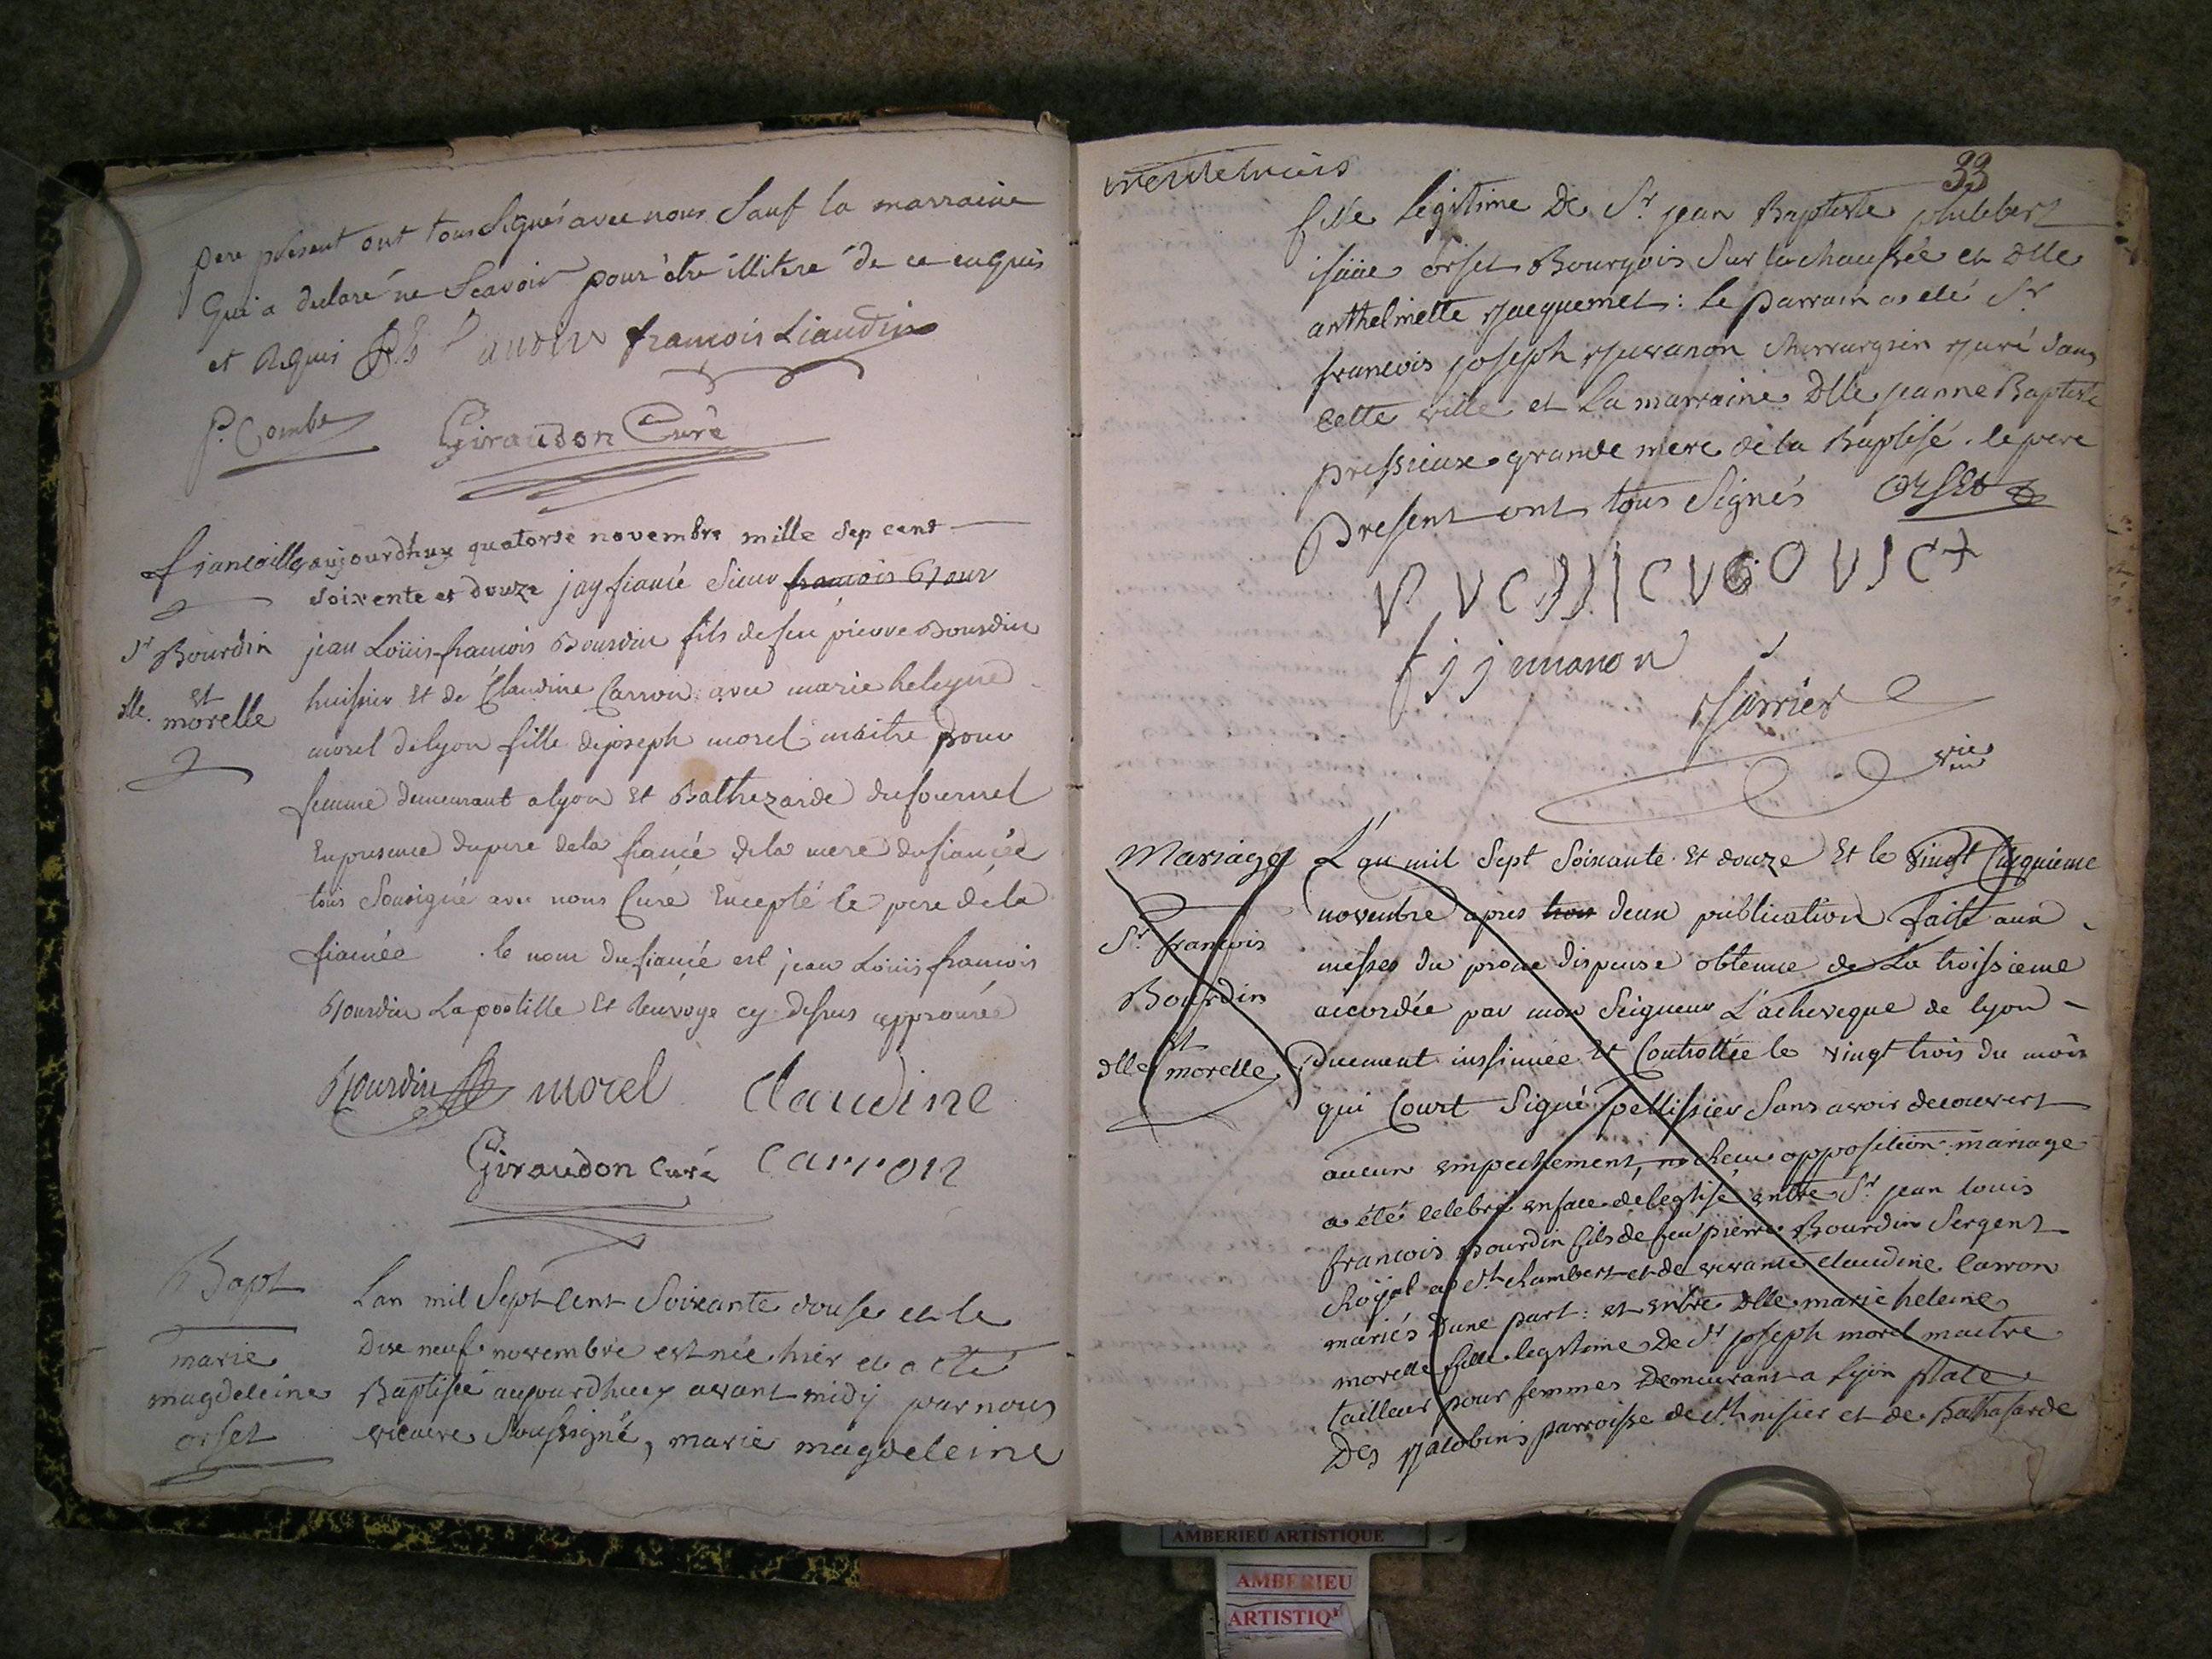 pere présent ont tous Signés avec nous Sauf la marraine
Qui a declaré ne Scavoir pour être illitere de ce enquis
et Requis françois Liaudin
P. Combe Giraudon Curé
fiancaille aujourdhuy quatorse novembre mille sep cent
soixente et douze jay fiancé Sieur francois Bour
Sr Bourdin
et
dlle. morelle
jean Loüis francois Bourdin fils de feu pierre Bourdin
huissier Et de Claudine Carron avec marie heleyne
morel de lyon fille de joseph morel maitre pour
femme demeurant a lyon Et Balthezarde dufournel
En presence du pere de la fiancé de la mere du fiancée
tous Sousigné avec nous Curé Excepté le pere de la
fiancée . le nom du fiancé est jean Loüis francois
Bourdin La postille Et Renvoye cy dessus approuvée
Bourdin morel Claudine
Giraudon curé Carron
Bapt
marie
magdeleine
orset
Lan mil Sept Cent Soixante douse et le
Dixe neuf novembre est née hier et a eté
Baptisée aujourdhuey avant midÿ par nous
vicaire Soussigné, marie magdeleine
trentetrois
33
fille legitime De Sr. jean Baptiste philibert
isaäe orset Bourgois Sur la chaussée et Dlle
anthelmette Jacquemet : le parrain a eté Sr
francois joseph Juvanon Chirrurgien Juré dans
cette ville et La marraine Dlle jeanne Baptiste
pressieuse grande mere de la Baptisé . le pere
present ont tous Signés orset
f j juuanon
Jarrier
vic
Mariage
Sr. francois
Bourdin
Et
dlle morelle
L'an mil Sept Soixante Et douze Et le Vingt Cinquieme
novembre apres trois deux publication faite aux
messes du prone dispense obtenue de La troissieme
accordée par mon Seigneur L'acheveque de lyon
duement inssinuée Et Controllée le vingt trois du mois
qui Court Signé pellissier Sans avoir decouvert
aucun empechement, opposition mariage
a été celebré en face de leglise entre Sr jean louis
francois Bourdin fils de feu pierre Bourdin Sergent
Royal a St Rambert et de vivante claudine Carron
mariés Dune part : et entre Dlle marie heleine
morelle fille legitime De Sr joseph morel maitre
tailleur pour femmes Demeurant a lyon place
Des Jacobins parroisse de St nisier et de Bathasarde
AMBERIEU ARTISTIQUE
AMBERIEU
ARTISTIQ